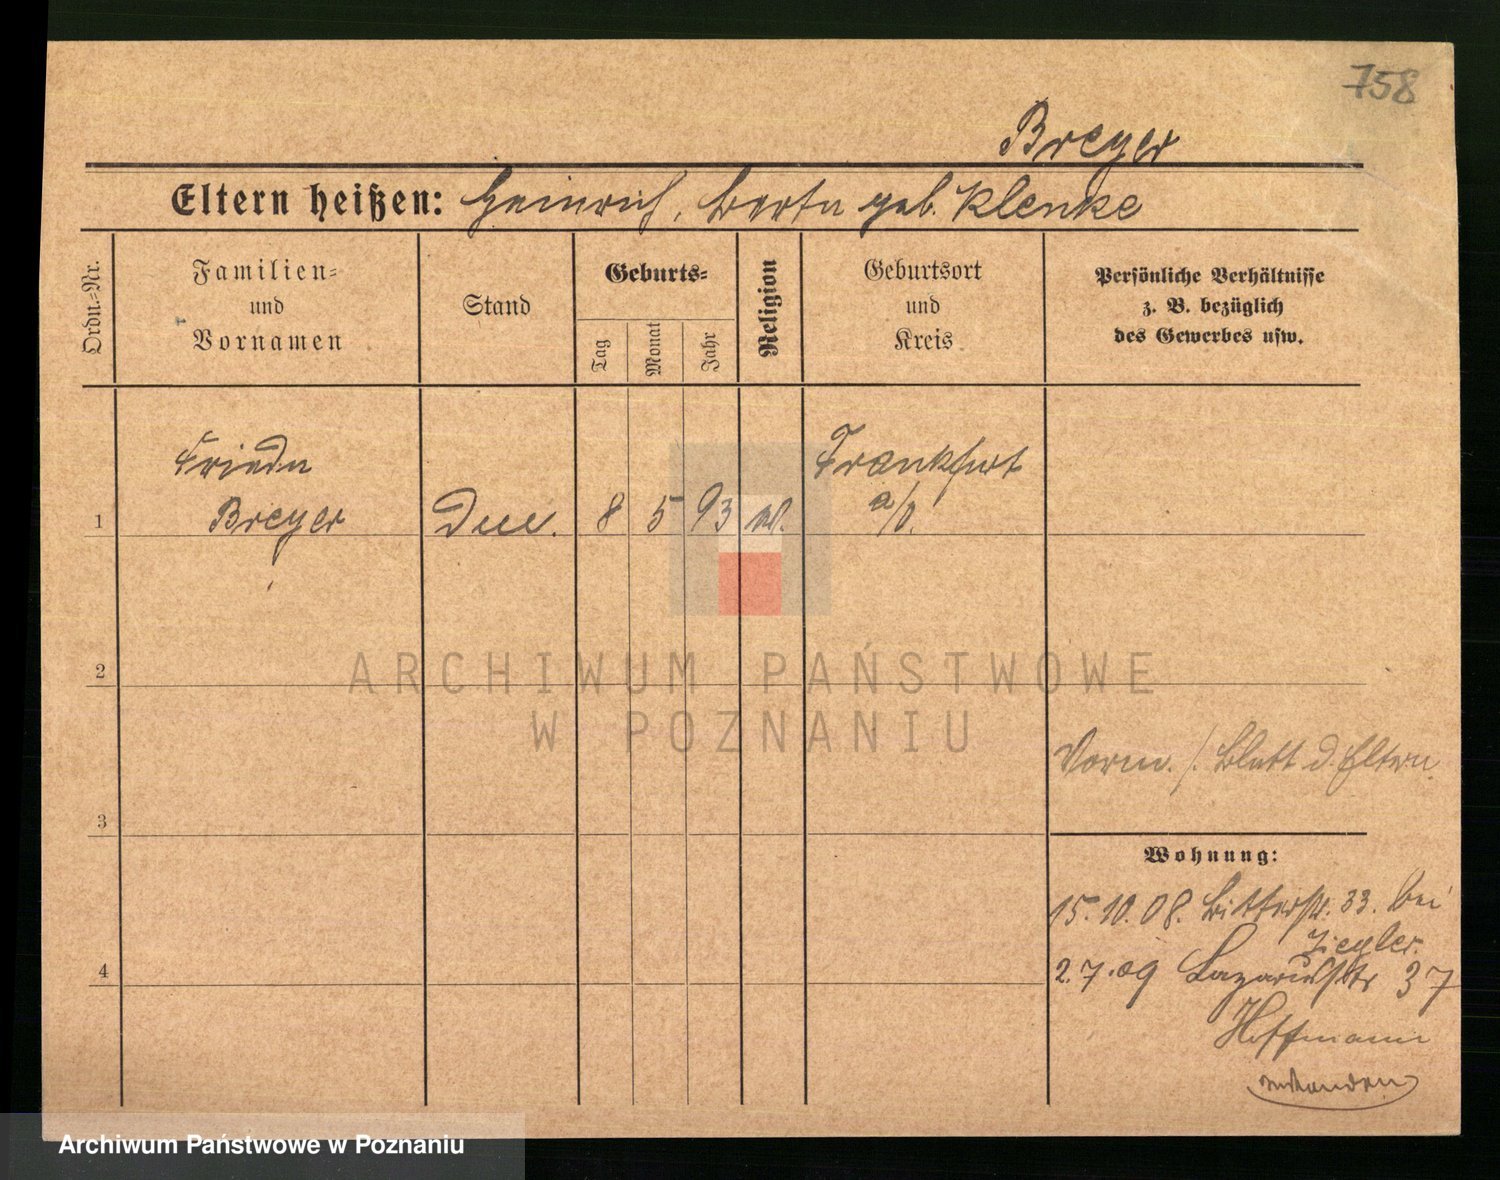 758
Breyer
Eltern heißen: Heinrich, Berta geb. Klenke
Ordn.=Nr.
Familien=
und
Vornamen
Stand
Geburts=
Tag
Monat
Jahr
Religion
Geburtsort
und
Kreis
Persönliche Verhältnisse
z. B. bezüglich
des Gewerbes usw.
Frieda
Breyer
1
8
5
93
Frankfurt
a/O.
2
ARCHIWUM PAŃSTWOWE
W POZNANIU
Verm. /. Blatt d. Eltern.
3
Wohnung:
15.10.08. Ritterstr. 33. bei
Ziegler.
4
2.7.09 Lazarusstr 37
Hoffmann
Archiwum Państwowe w Poznaniu